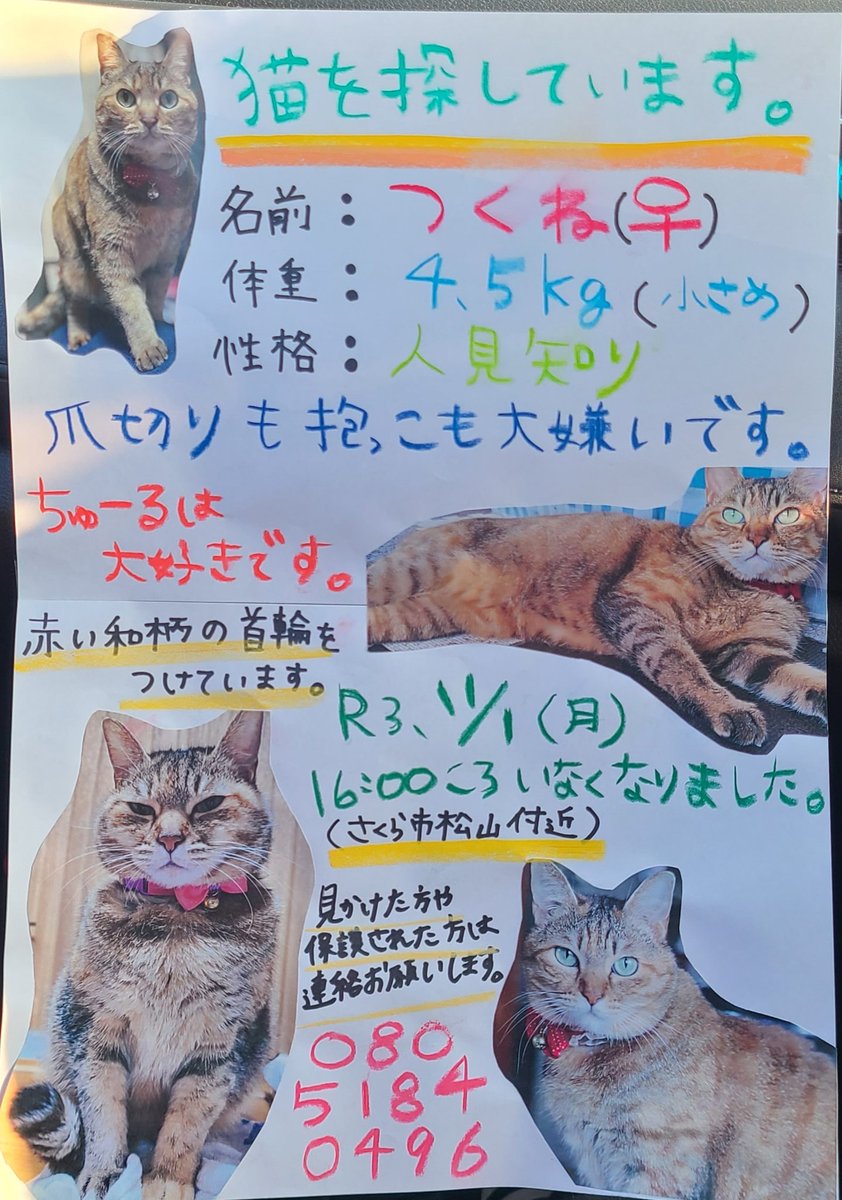 猫を探しています。
名前：つくね(♀)
体重：4.5kg(小さめ)
性格：人見知り
爪切りも抱っこも大嫌いです。
ちゅーるは
大好きです。
赤い和柄の首輪を
つけています。
R3、11/1(月)
16:00ころいなくなりました。
(さくら市松山付近)
見かけた方や
保護された方は
連絡お願いします。
080
5184
0496